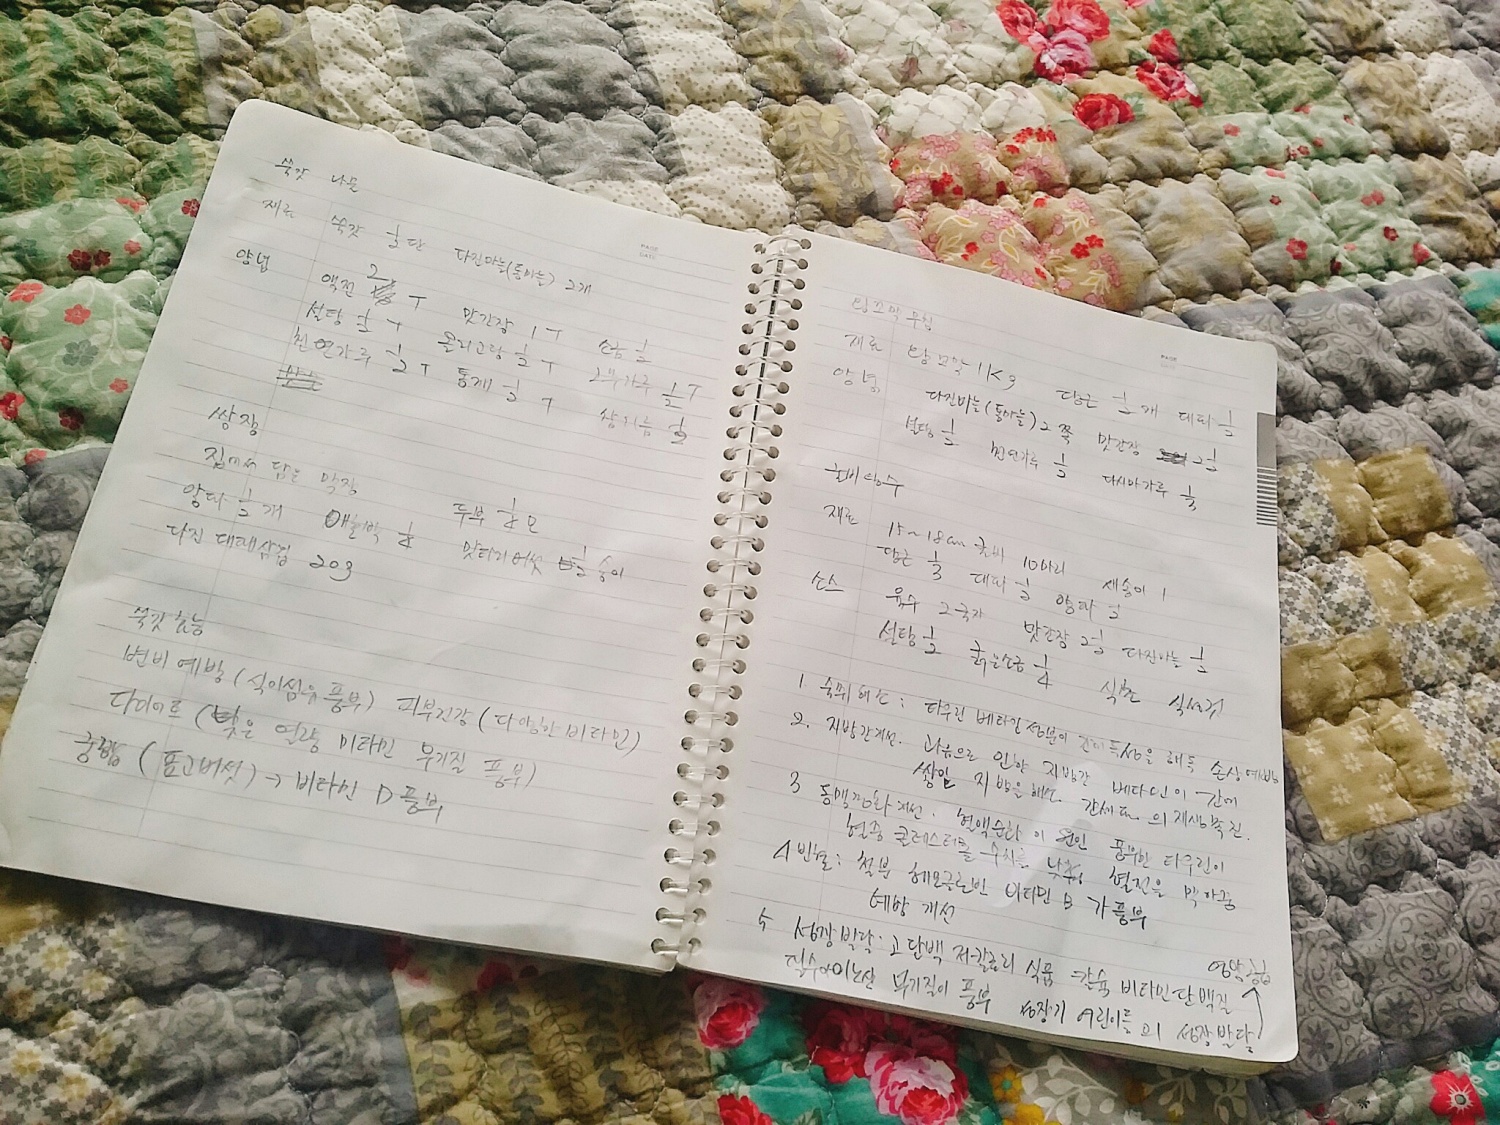 쑥갓 나물
PAGE
DATE
재료 쑥갓 1/2단 다진마늘(통마늘) 2개
양념 액젓 2 T 맛간장 1 T 소금 1/2
설탕 1/2 T 올리고당 1/2 T 가루 1/2 T
천연가루 1/2 T 통깨 1/2 T 참기름 1/2
쌈장
집에서 담은 막장
양파 1/2개 애호박 1/4 두부 1/4모
다진 대패삼겹 20g 맛타리버섯 1/2 송이
쑥갓효능
변비 예방 (식이섬유 풍부) 피부건강 (다양한 비타민)
다이어트 (낮은 열량 비타민 무기질 풍부)
궁합 (표고버섯) → 비타민 D 풍부
PAGE
DATE
탕꼬막 무침
재료 탕꼬막 1Kg 당근 1/2개 대파 1/2
양념 다진마늘(통마늘) 2쪽 맛간장 2 1/2
설탕 1/2 천연가루 1/2 다시마가루 1/3
굴비탕수
재료 15~18cm 굴비 10마리 새송이 1
당근 1/3 대파 1/2 양파 1/2
소스 육수 2국자 맛간장 2 1/2 다진마늘 1/2
설탕 1/2 굵은소금 1/4 식초
1. 숙취해소: 타우린 베타인 성분이 간에 독성을 해독 손상예방
2. 지방간개선. 과음으로 인한 지방간 베타인이 간에
쌓인 지방을 해소 간세포의 재생촉진.
3 동맥경화개선. 혈액순환이 원인 풍부한 타우린이
혈중 콜레스테롤 수치를 낮춰 혈전을 막아줌
4 빈혈: 철분 헤모글로빈 비타민 B 가 풍부
예방 개선
5 성장발달: 고단백 저칼로리 식품 칼슘 비타민 단백질
필수아미노산 무기질이 풍부 성장기 어린이들의 성장발달
영양